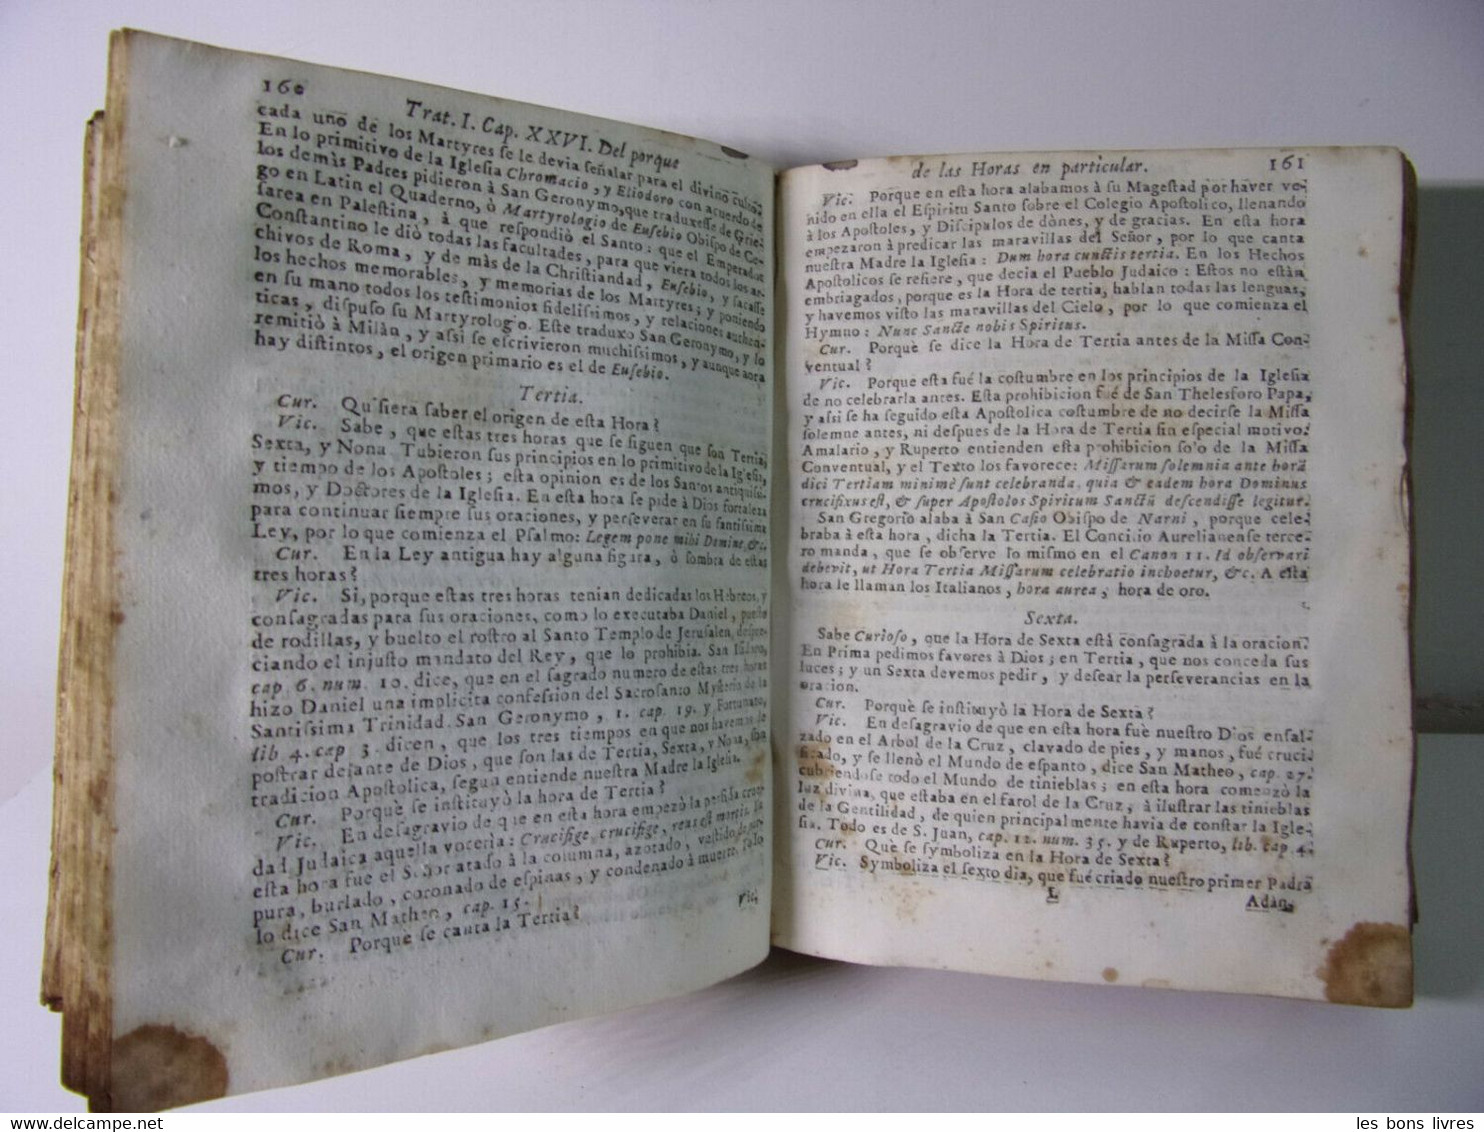 160
Trat. I. Cap. XXVI. Del porque
cada uno de los Martyres ſe le devia ſeñalar para el divino culto.
En lo primitivo de la Igleſia Chromacio, y Eliodoro con acuerdo de
los demàs Padres pidieron à San Geronymo, que traduxeſſe de Grie-
go en Latin el Quaderno, ò Martyrologio de Euſebio Obiſpo de Ce-
ſarea en Paleſtina, à que reſpondiò el Santo: que el Emperador
Conſtantino le diò todas las facultades, para que viera todos los ar-
chivos de Roma, y de màs de la Chriſtiandad, Euſebio, y ſacaſſe
los hechos memorables, y memorias de los Martyres; y poniendo
en ſu mano todos los teſtimonios fideliſſimos, y relaciones authen-
ticas, diſpuſo ſu Martyrologio. Eſte traduxo San Geronymo, y lo
remitiò à Milàn, y aſſi ſe eſcrivieron muchiſſimos, y aunque aora
hay diſtintos, el origen primario es el de Euſebio.
Tertia.
Cur. Quiſiera ſaber el origen de eſta Hora?
Vic. Sabe, que eſtas tres horas que ſe ſiguen que ſon Tertia,
Sexta, y Nona Tubieron ſus principios en lo primitivo de la Igleſia,
y tiempo de los Apoſtoles; eſta opinion es de los Santos antiquiſſi-
mos, y Doctores de la Igleſia. En eſta hora ſe pide à Dios fortaleza
para continuar ſiempre ſus oraciones, y perſeverar en ſu ſantiſſima
Ley, por lo que comienza el Pſalmo: Legem pone mihi Domine, &c.
Cur. En la Ley antigua hay alguna figura, ò ſombra de eſtas
tres horas?
Vic. Si, porque eſtas tres horas tenian dedicadas los Hebreos, y
conſagradas para ſus oraciones, como lo executaba Daniel, pueſto
de rodillas, y buelto el roſtro al Santo Templo de Jeruſalen, deſpre-
ciando el injuſto mandato del Rey, que lo prohibia. San Iſidoro,
cap 6. num. 10. dice, que en el ſagrado numero de eſtas tres horas
hizo Daniel una implicita confeſſion del Sacroſanto Myſterio de la
Santiſſima Trinidad. San Geronymo, 1. cap. 19. y Fortunato,
lib 4. cap 3. dicen, que los tres tiempos en que nos havemos de
poſtrar delante de Dios, que ſon las de Tertia, Sexta, y Nona, ſon
tradicion Apoſtolica, ſegun entiende nueſtra Madre la Igleſia.
Cur. Porquè ſe inſtituyò la hora de Tertia?
Vic. En deſagravio de que en eſta hora empezò la perfida cruel-
dad Judaica aquella voceria: Crucifige, crucifige, reus eſt mortis. En
eſta hora fue el S. or atado à la columna, azotado, veſtido de pur-
pura, burlado, coronado de eſpinas, y condenado à muerte. Todo
lo dice San Matheo, cap. 15.
Cur. Porquè ſe canta la Tertia?
Vic.
de las Horas en particular. 161
Vic. Porque en eſta hora alabamos à ſu Mageſtad por haver ve-
nido en ella el Eſpiritu Santo ſobre el Colegio Apoſtolico, llenando
à los Apoſtoles, y Diſcipulos de dònes, y de gracias. En eſta hora
empezaron à predicar las maravillas del Señor, por lo que canta
nueſtra Madre la Igleſia: Dum hora cunctis tertia. En los Hechos
Apoſtolicos ſe reſiere, que decia el Pueblo Judaico: Eſtos no eſtàn
embriagados, porque es la Hora de tertia, hablan todas las lenguas,
y havemos viſto las maravillas del Cielo, por lo que comienza el
Hymno: Nunc Sancte nobis Spiritus.
Cur. Porquè ſe dice la Hora de Tertia antes de la Miſſa Con-
ventual?
Vic. Porque eſta fué la coſtumbre en los principios de la Igleſia
de no celebrarla antes. Eſta prohibicion fué de San Thelesforo Papa,
y aſſi ſe ha ſeguido eſta Apoſtolica coſtumbre de no decirſe la Miſſa
ſolemne antes, ni deſpues de la Hora de Tertia ſin eſpecial motivo.
Amalario, y Ruperto entienden eſta prohibicion ſo'o de la Miſſa
Conventual, y el Texto los favorece: Miſſarum ſolemnia ante horã
dici Tertiam minimè ſunt celebranda, quia & eadem hora Dominus
crucifixus eſt, & ſuper Apoſtolos Spiritum Sanctũ deſcendiſſe legitur.
San Gregorio alaba à San Caſio Obiſpo de Narni, porque cele-
braba à eſta hora, dicha la Tertia. El Concilio Aurelianenſe terce-
ro manda, que ſe obſerve lo miſmo en el Canon 11. Id obſervari
debevit, ut Hora Tertia Miſſarum celebratio inchoetur, &c. A eſta
hora le llaman los Italianos, hora aurea, hora de oro.
Sexta.
Sabe Curioſo, que la Hora de Sexta eſtá conſagrada à la oracion.
En Prima pedimos favores à Dios; en Tertia, que nos conceda ſus
luces; y un Sexta devemos pedir, y deſear la perſeverancias en la
oracion.
Cur. Porquè ſe inſtituyò la Hora de Sexta?
Vic. En deſagravio de que en eſta hora fuè nueſtro Dios enſal-
zado en el Arbol de la Cruz, clavado de pies, y manos, fué cruci-
ficado, y ſe llenò el Mundo de eſpanto, dice San Matheo, cap. 27.
cubriendoſe todo el Mundo de tinieblas; en eſta hora comenzò la
luz divina, que eſtaba en el farol de la Cruz, à iluſtrar las tinieblas
de la Gentilidad, de quien principalmente havia de conſtar la Igle-
ſia. Todo es de S. Juan, cap. 12. num. 35. y de Ruperto, lib. cap. 4.
Cur. Què ſe ſymboliza en la Hora de Sexta?
Vic. Symboliza el ſexto dia, que fué criado nueſtro primer Padre
L
Adàn,
les bons livres